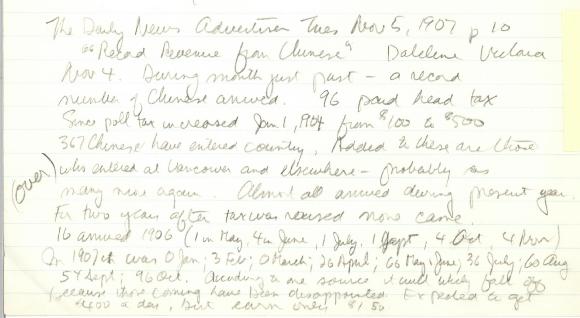 The Daily News Advertiser Tues Nov 5, 1907 p 10
"Record Revenue from Chinese" Dateline Victoria
Nov 4. During month just past - a record
number of Chinese arrived. 96 paid head tax
Since poll tax increased Jan 1, 1904 from $100 to $500
367 Chinese have entered country. Added to these are those
(over) who entered at Vancouver and elsewhere - probably as
many more again. Almost all arrived during present year.
For two years after tax was raised none came.
16 arrived 1906 (1 in May, 4 in June, 1 July, 1 Sept, 4 Oct, 4 Nov)
In 1907 it was 0 Jan; 3 Feb; 0 March; 26 April; 66 May + June; 36 July; 60 Aug
54 Sept; 96 Oct. According to one source it will likely fall off
because those coming have been disappointed. Expected to get
$4.00 a day, but earn only $1.50